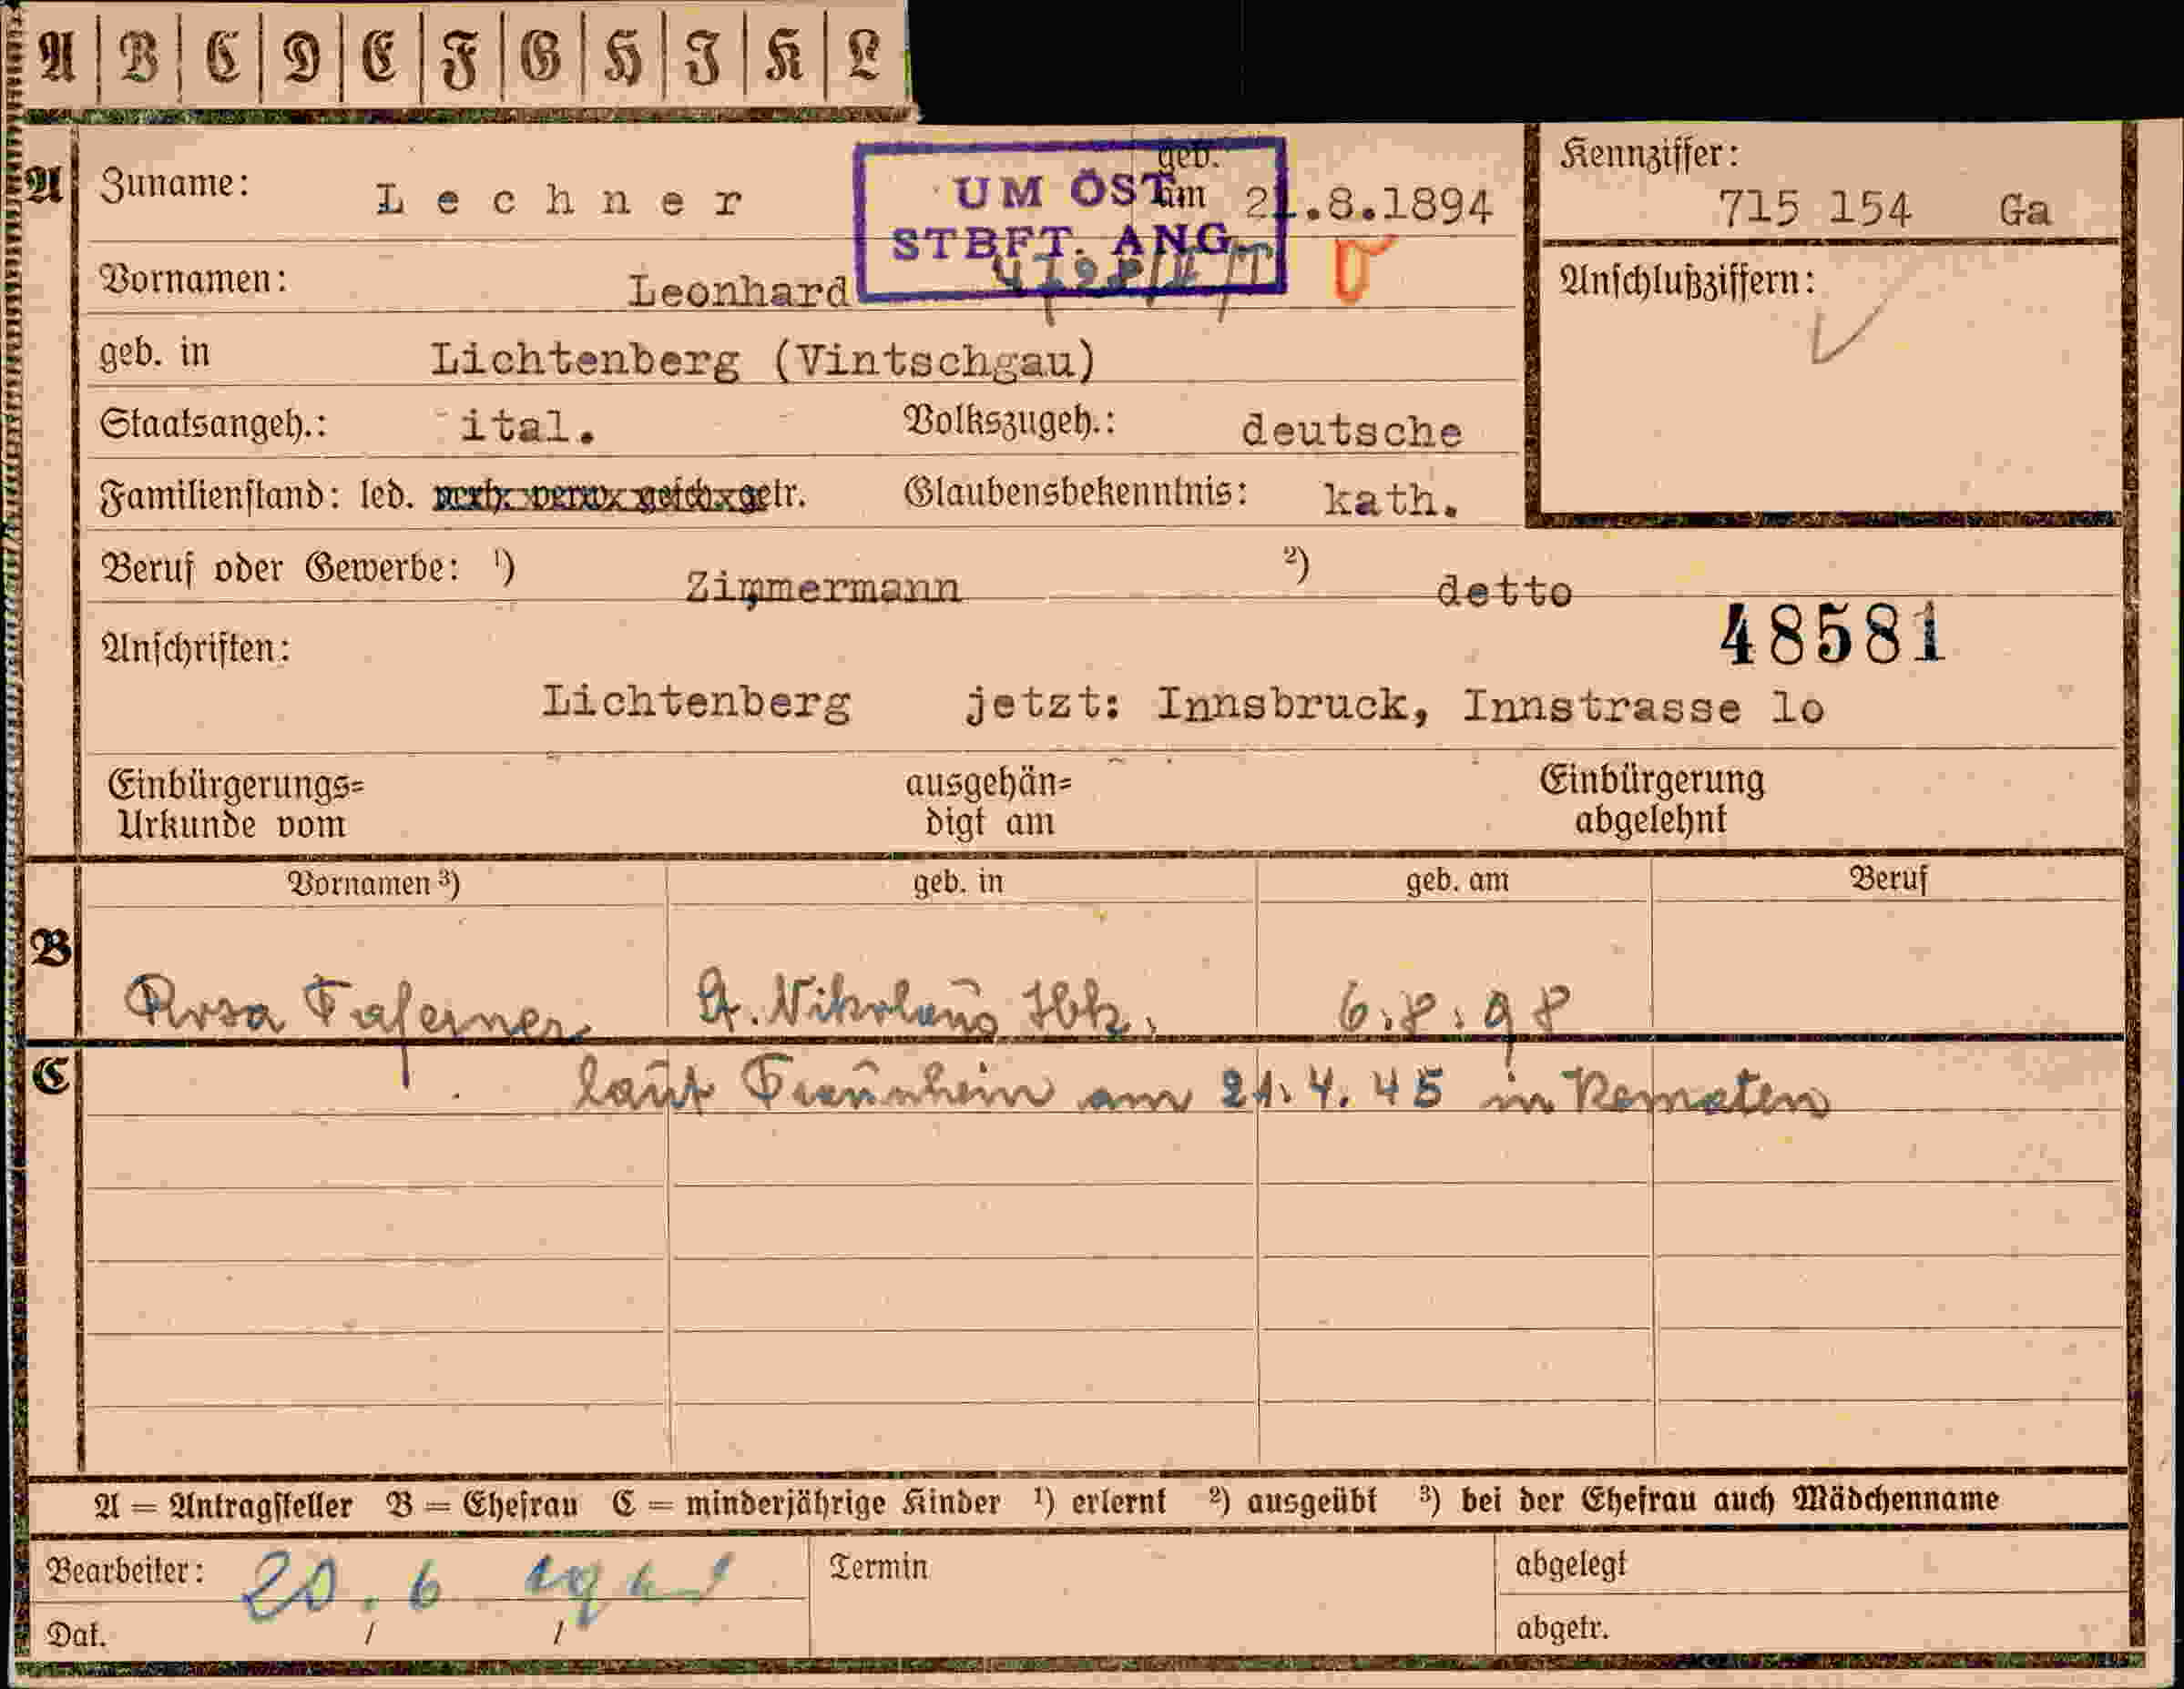 A B C D E F G H I K L
A Zuname: Lechner geb. am 21.8.1894
UM ÖST.
STBFT. ANG.
Kennziffer:
715 154 Ga
Vornamen: Leonhard
Anschlußziffern:
geb. in Lichtenberg (Vintschgau)
Staatsangeh.: ital. Volkszugeh.: deutsche
Familienstand: led. verh. verw. gesch. getr. Glaubensbekenntnis: kath.
Beruf oder Gewerbe: 1) Zimmermann 2) detto
48581
Anschriften:
Lichtenberg jetzt: Innsbruck, Innstrasse lo
Einbürgerungs= ausgehän= Einbürgerung
Urkunde vom digt am abgelehnt
Vornamen 3) geb. in geb. am Beruf
B
Rosa Taferner St. Nikolaus Ibk. 6.8.98
C
laut Traunhein am 21.4.45 in Kematen
A = Antragsteller B = Ehefrau C = minderjährige Kinder 1) erlernt 2) ausgeübt 3) bei der Ehefrau auch Mädchenname
Bearbeiter: 20. 6 Termin abgelegt
Dat. / / abgetr.